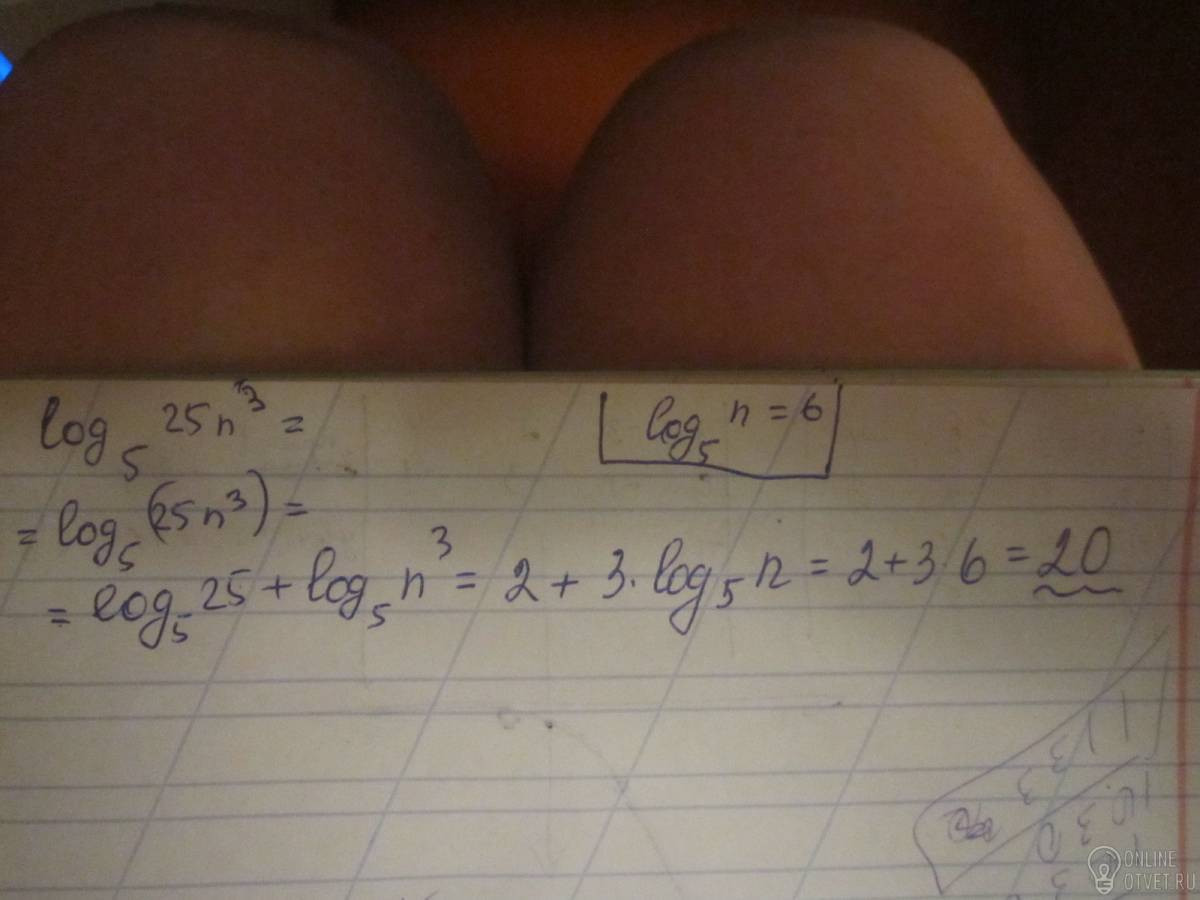 log₅ 25n³ =
log₅ n = 6
= log₅(25n³) =
= log₅ 25 + log₅ n³ = 2 + 3·log₅ n = 2+3·6 = 20
ONLINE
OTVET.RU